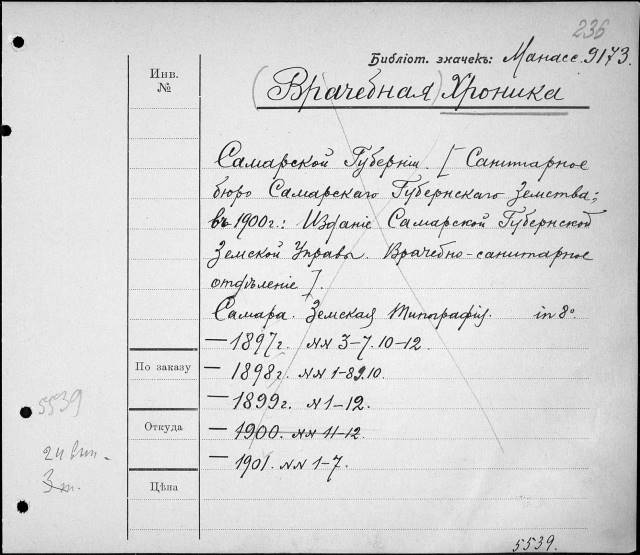 236
Библіот. значекъ: Манасс. 9173.
Инв.
№
(Врачебная) Хроника
Самарской Губерніи. [Санитарное
бюро Самарскаго Губернскаго Земства;
въ 1900 г.: Изданіе Самарской Губернской
Земской Управы. Врачебно-санитарное
отдѣленіе].
Самара. Земская Типографія. in 8º
— 1897 г. №№ 3-7. 10-12.
По заказу
— 1898 г. №№ 1-8. 9. 10.
— 1899 г. № 1-12.
5539
Откуда
— 1900. №№ 11-12.
24 вып.
— 1901. №№ 1-7.
3 т.
Цѣна
5539.